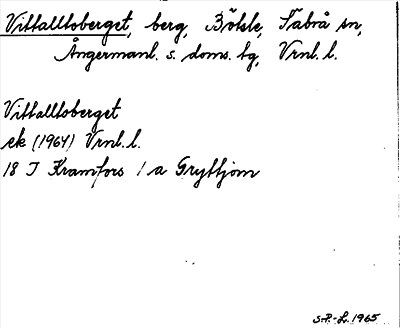 Vittalltoberget, berg, Bölsle, Säbrå sn,
Ångermanl. s. doms. tg, Vrnl. l.
Vittalltoberget
ek (1964) Vrnl. l.
18 I Kramfors 1 a Gryttjom
S.P.-L. 1965